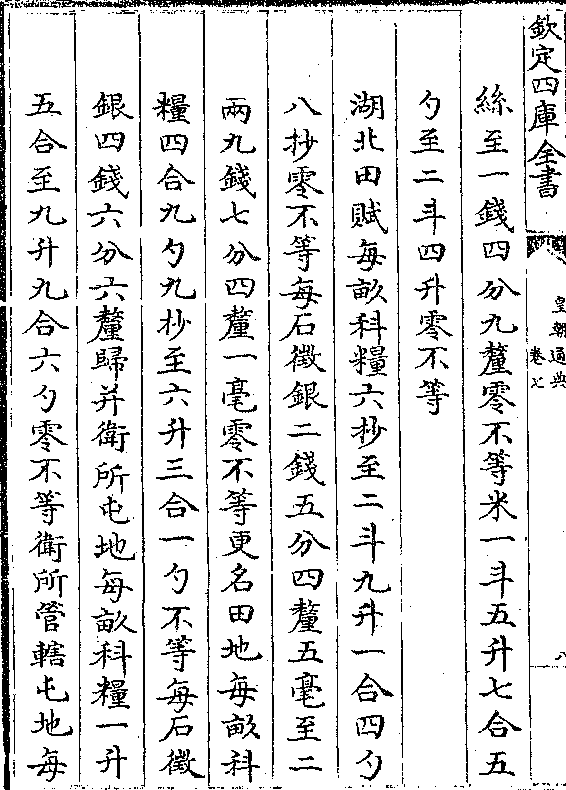 欽定四庫全書
皇朝通典
卷七
八
絲至一錢四分九釐零不等米一斗五升七合五
勺至二斗四升零不等
湖北田賦每畝科糧六抄至二斗九升一合四勺
八抄零不等每石徵銀二錢五分四釐五毫至二
兩九錢七分四釐一毫零不等更名田地每畝科
糧四合九勺九抄至六升三合一勺不等每石徵
銀四錢六分六釐歸并衛所屯地每畝科糧一升
五合至九升九合六勺零不等衛所管轄屯地每